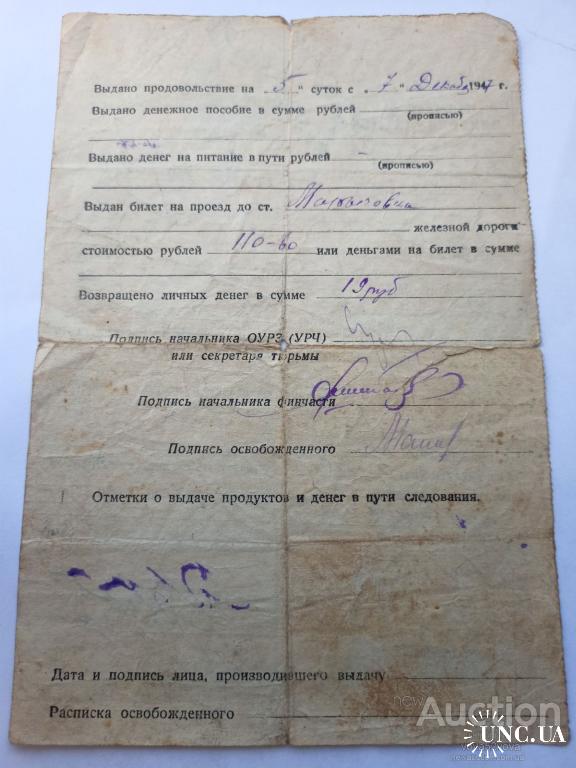 Выдано продовольствие на „ 5 " суток с „ 7 " Декабр 1947 г.
Выдано денежное пособие в сумме рублей
(прописью)
Выдано денег на питание в пути рублей -
(прописью)
Выдан билет на проезд до ст.
железной дороги
стоимостью рублей 110-60 или деньгами на билет в сумме
Возвращено личных денег в сумме 19 руб
Подпись начальника ОУРЗ (УРЧ)
или секретаря тюрьмы
Подпись начальника финчасти
Подпись освобожденного
Отметки о выдаче продуктов и денег в пути следования.
Дата и подпись лица, производившего выдачу
Расписка освобожденного
new
Auction
UNC.UA